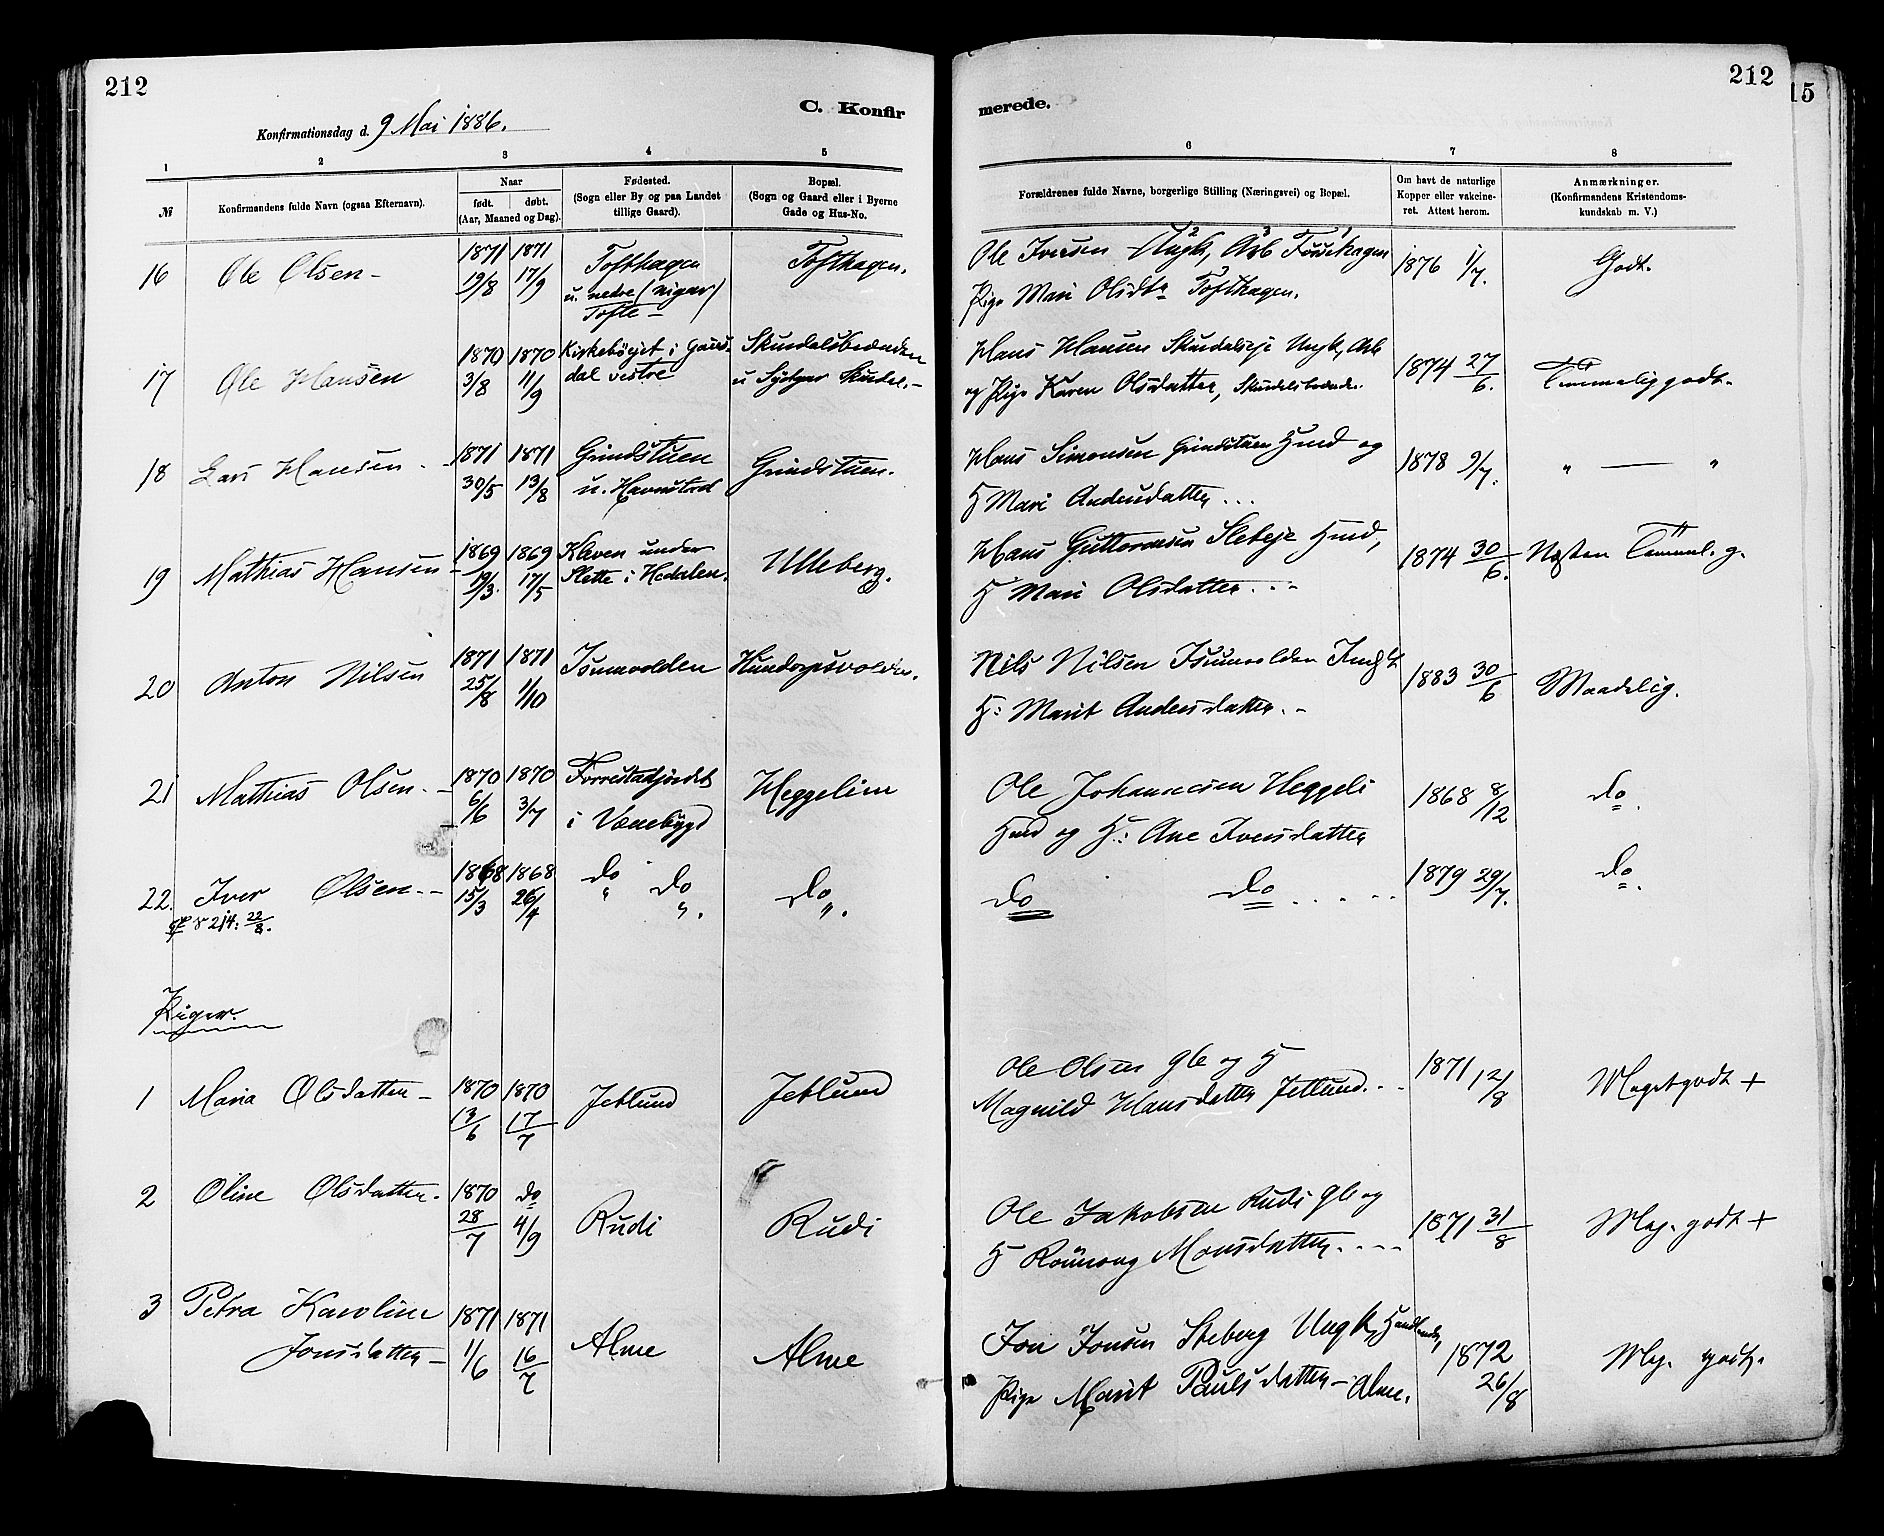 212
C. Konfir
merede.
212
15
Konfirmationsdag d. 9 Mai 1886.
1 2 3 4 5 6 7 8
№
Konfirmandens fulde Navn (ogsaa Efternavn).
Naar
født. døbt.
(Aar, Maaned og Dag).
Fødested.
(Sogn eller By og paa Landet
tillige Gaard).
Bopæl.
(Sogn og Gaard eller i Byerne
Gade og Hus-No.
Forældrenes fulde Navne, borgerlige Stilling (Næringsvei) og Bopæl.
Om havt de naturlige
Kopper eller vakcine-
ret. Attest herom.
Anmærkninger.
(Konfirmandens Kristendoms-
kundskab m. V.)
16 Ole Olsen - 1871 19/8 1871 17/9 Tofthagen Tofthagen. Ole Iversen Ungk, Arb 1876 1/7. Godt.
u. nedre (nigar) Pige Mari Olsdtr Tofthagen.
Tofte -
17 Ole Hansen 1870 3/8 1870 11/9 Kirkebøejet i Gaus- Hans Hansen Skurdalseje Ungk, Arb 1874 27/6. Temmelig godt.
dal vestre u Sylgar Skurdal.- og Pige Karen Olsdatter,
18 Lars Hansen - 1871 30/5 1871 13/8 Grindstuen Grindstuen. Hans Simensen Grindstuen Hmd og 1878 9/7. " — "
u. Havnstad H Mari Andersdatter...
19 Mathias Hansen - 1869 19/3. 1869 17/5 Kleven under Ulleberg. Hans Guttormsen Sleteje Hmd, 1874 30/6. Næsten Temmel. g.
Slette i Hedalen. H Mari Olsdatter...
20 Anton Nilsen 1871 25/8 1871 1/10 Isumvolden Hundorpsvolden. Nils Nilsen Isumvolden 1883 30/6 Maadelig.
H: Marit Andersdatter..
21 Mathias Olsen.- 1870 6/6 1870 3/7 Forrestadjordet Heggelien Ole Johannesen Heggeli 1868 8/12 do.
i Venebygd Hmd og H: Ane Iversdatter
22. Iver Olsen.- 1868 15/3 1868 26/4 do " do ". do ". do do..... 1879 29/7. do.
214: 22/8.
Piger.
1 Maria Olsdatter - 1870 13/6 1870 17/7 Jetlund Jetlund Ole Olsen gbr og H 1871 12/8 Megetgodt +
Magnild Hansdatter Jetlund...
2 Oline Olsdatter. 1870 28/7 do 4/9 Rudi Rudi Ole Jakobsen Rudi gbr og 1871 31/8 Meg. godt +
H Rønnaug Monsdatter....
3 Petra Karoline 1871 1/6 1871 16/7 Alme Alme Jon Jonsen Steberg Ungk, Handlende, 1872 26/8 Meg. godt.
Jonsdatter - Pige Marit Paulsdatter - Alme.